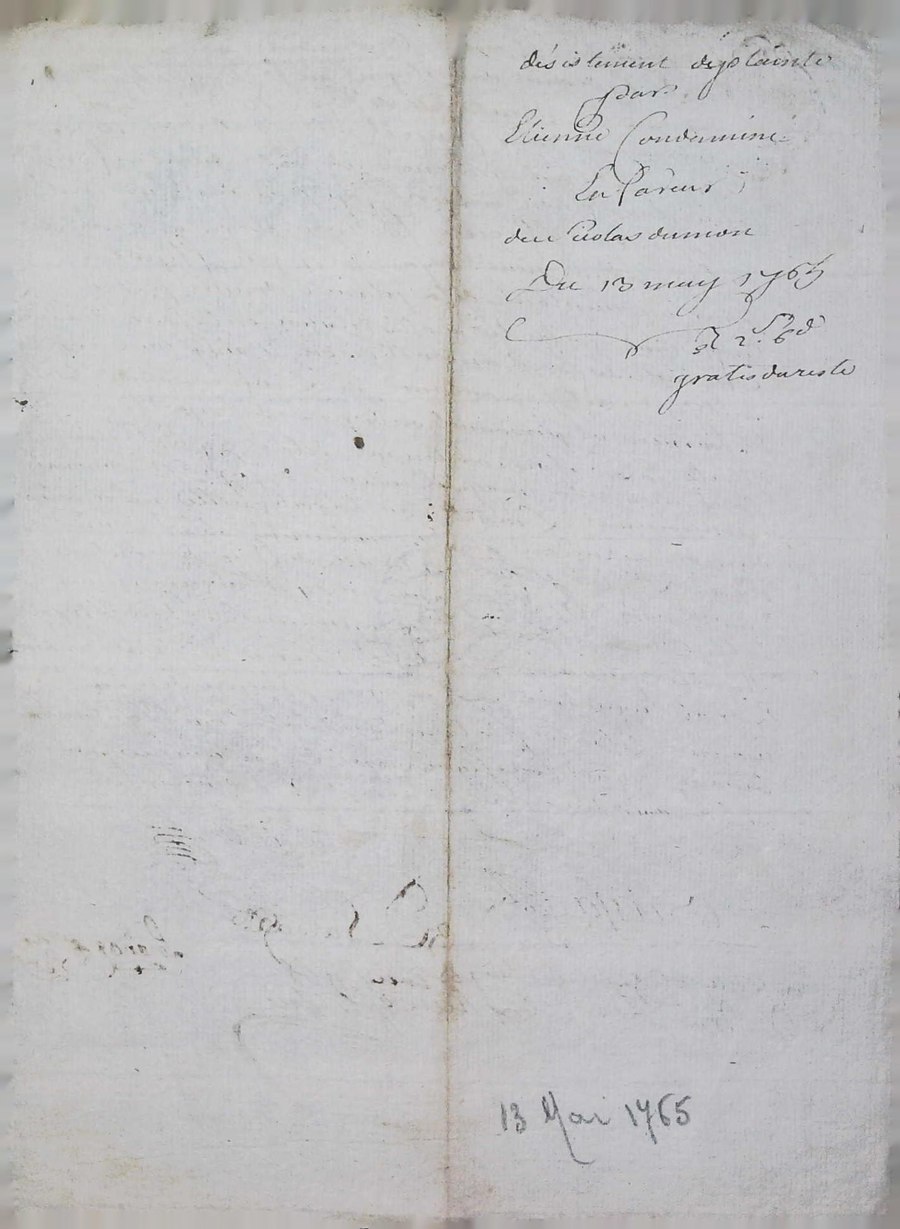 désistement de plainte
par
Etienne Condamine
En faveur
de Nicolas dumon
Du 13 may 1765
R 2s. 6d
gratis du reste
13 Mai 1765